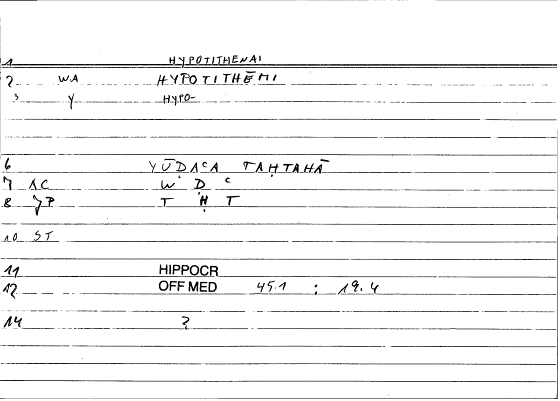 1 HYPOTITHENAI
2 WA HYPOTITHĒMI
3 Y HYPO-
6 YŪDAʿA TAḤTAHĀ
7 AC W D ʿ
8 JP T Ḥ T
10 ST
11 HIPPOCR
12 OFF MED 45.1 : 19.4
14 ?